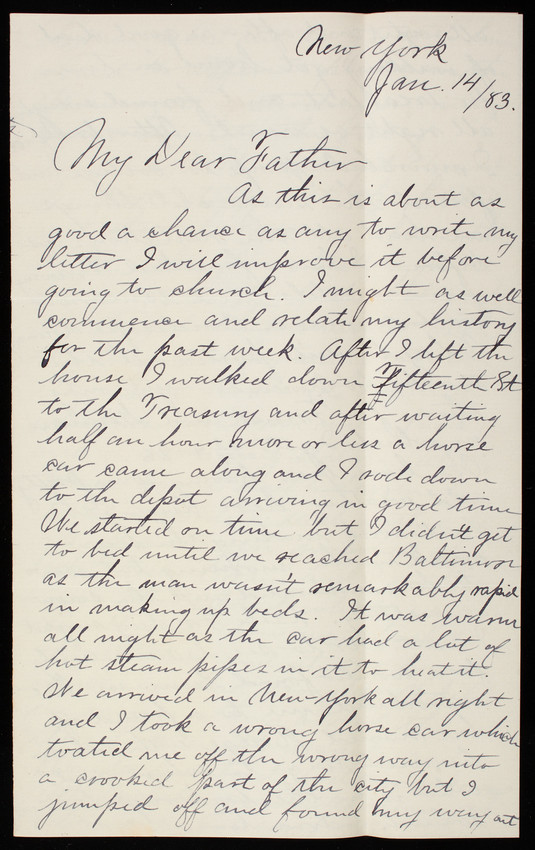 New York
Jan. 14/83.
My Dear Father
As this is about as
good a chance as any to write my
letter I will improve it before
going to church. I might as well
commence and relate my history
for the past week. After I left the
house I walked down Fifteenth St
to the Treasury and after waiting
half an hour more or less a horse
car came along and I rode down
to the depot arriving in good time
We started on time but I didn't get
to bed until we reached Baltimore
as the man wasn't remarkably rapid
in making up beds. It was warm
all night as the car had a lot of
hot steam pipes in it to heat it.
We arrived in New York all right
and I took a wrong horse car which
toated me off the wrong way into
a crooked part of the city but I
jumped off and found my way out